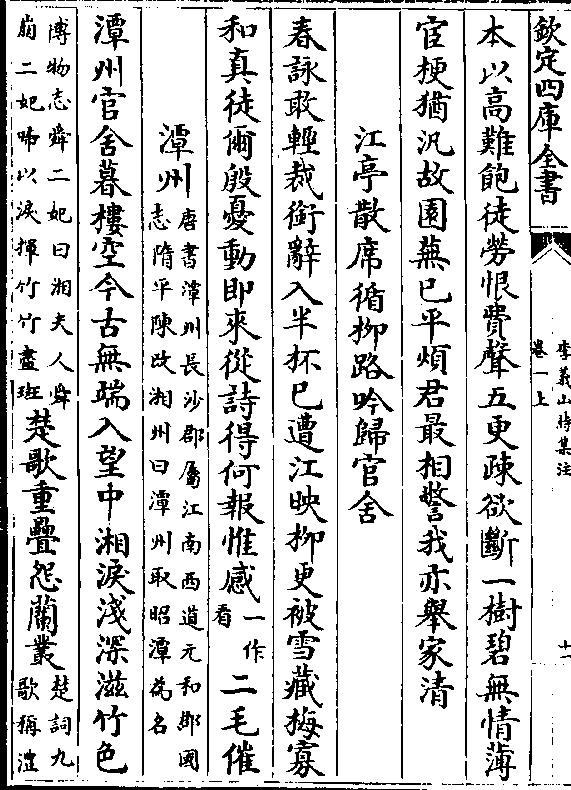 欽定四庫全書
李義山詩集注
卷一上
十一
本以高難飽徒勞恨費聲五更疎欲斷一樹碧無情薄
宦梗猶汎故園蕪已平煩君最相警我亦舉家清
江亭散席循柳路吟歸官舍
春詠敢輕裁銜辭入半杯已遭江映柳更被雪藏梅寡
和真徒爾殷憂動即來從詩得何報惟感
一作
看
二毛催
潭州
唐書潭州長沙郡屬江南西道元和郡國
志隋平陳改湘州曰潭州取昭潭為名
潭州官舍暮樓空今古無端入望中湘淚淺深滋竹色
博物志舜二妃曰湘夫人舜
崩二妃啼以淚揮竹竹盡斑
楚歌重疊怨蘭叢
楚詞九
歌稱澧